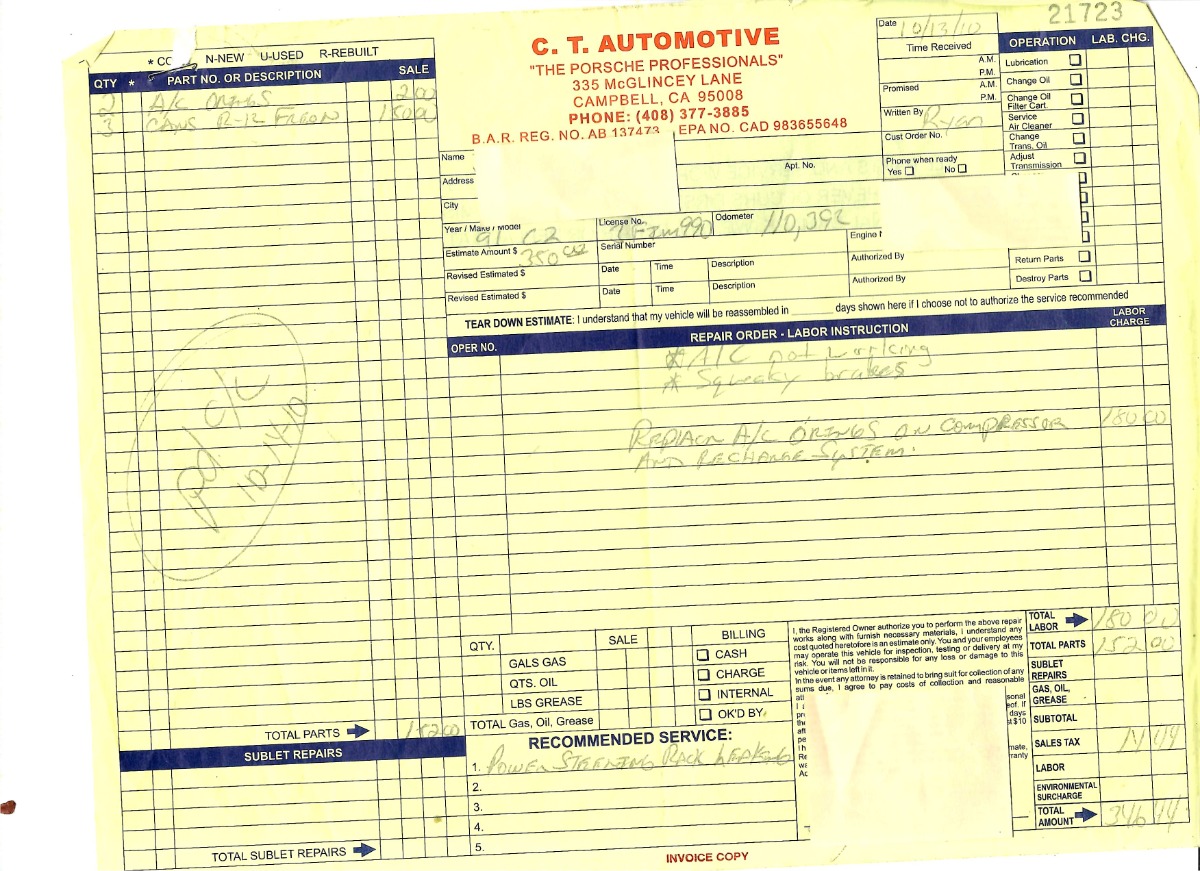 21723
* CO N-NEW U-USED R-REBUILT
QTY * PART NO. OR DESCRIPTION SALE
2 A/C ORINGS 2 00
3 CANS R-12 FREON 150 00
pd c/c
10-14-10
TOTAL PARTS 152 00
SUBLET REPAIRS
TOTAL SUBLET REPAIRS
C. T. AUTOMOTIVE
"THE PORSCHE PROFESSIONALS"
335 McGLINCEY LANE
CAMPBELL, CA 95008
PHONE: (408) 377-3885
B.A.R. REG. NO. AB 137473 EPA NO. CAD 983655648
Name
Address
Apt. No.
City
Year / Make / Model 91 C2
License No.
Odometer 110,392
Estimate Amount $ 350
Serial Number
Engine
Revised Estimated $ Date Time Description Authorized By
Revised Estimated $ Date Time Description Authorized By
Date 10/13/10
Time Received
A.M.
P.M.
Promised
A.M.
P.M.
Written By Ryan
Cust Order No.
Phone when ready
Yes No
OPERATION LAB. CHG.
Lubrication
Change Oil
Change Oil
Filter Cart.
Service
Air Cleaner
Change
Trans. Oil
Adjust
Transmission
Return Parts
Destroy Parts
TEAR DOWN ESTIMATE: I understand that my vehicle will be reassembled in ______ days shown here if I choose not to authorize the service recommended
OPER NO. REPAIR ORDER - LABOR INSTRUCTION LABOR CHARGE
* A/C not working
* Squeaky brakes
REPLACE A/C ORINGS ON COMPRESSOR 180 00
AND RECHARGE SYSTEM.
QTY. SALE BILLING
GALS GAS CASH
QTS. OIL CHARGE
LBS GREASE INTERNAL
TOTAL Gas, Oil, Grease OK'D BY
RECOMMENDED SERVICE:
1. POWER STEERING RACK LEAKING
2.
3.
4.
5.
I, the Registered Owner authorize you to perform the above repair
works along with furnish necessary materials, I understand any
cost quoted heretofore is an estimate only. You and your employees
may operate this vehicle for inspection, testing or delivery at my
risk. You will not be responsible for any loss or damage to this
vehicle or items left in it.
In the event any attorney is retained to bring suit for collection of any
sums due, I agree to pay costs of collection and reasonable
TOTAL LABOR 180 00
TOTAL PARTS 152 00
SUBLET REPAIRS
GAS, OIL, GREASE
SUBTOTAL
SALES TAX 14 44
LABOR
ENVIRONMENTAL SURCHARGE
TOTAL AMOUNT 346 44
INVOICE COPY